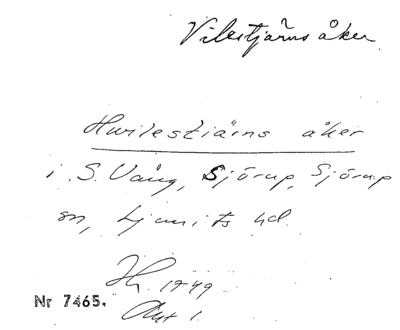 Vilestjärns åker
Hwilestiärns åker
i S. Vång, Sjörup, Sjörup
sn, Ljunits hd.
Hh. 1749
Akt 1.
Nr 7465.